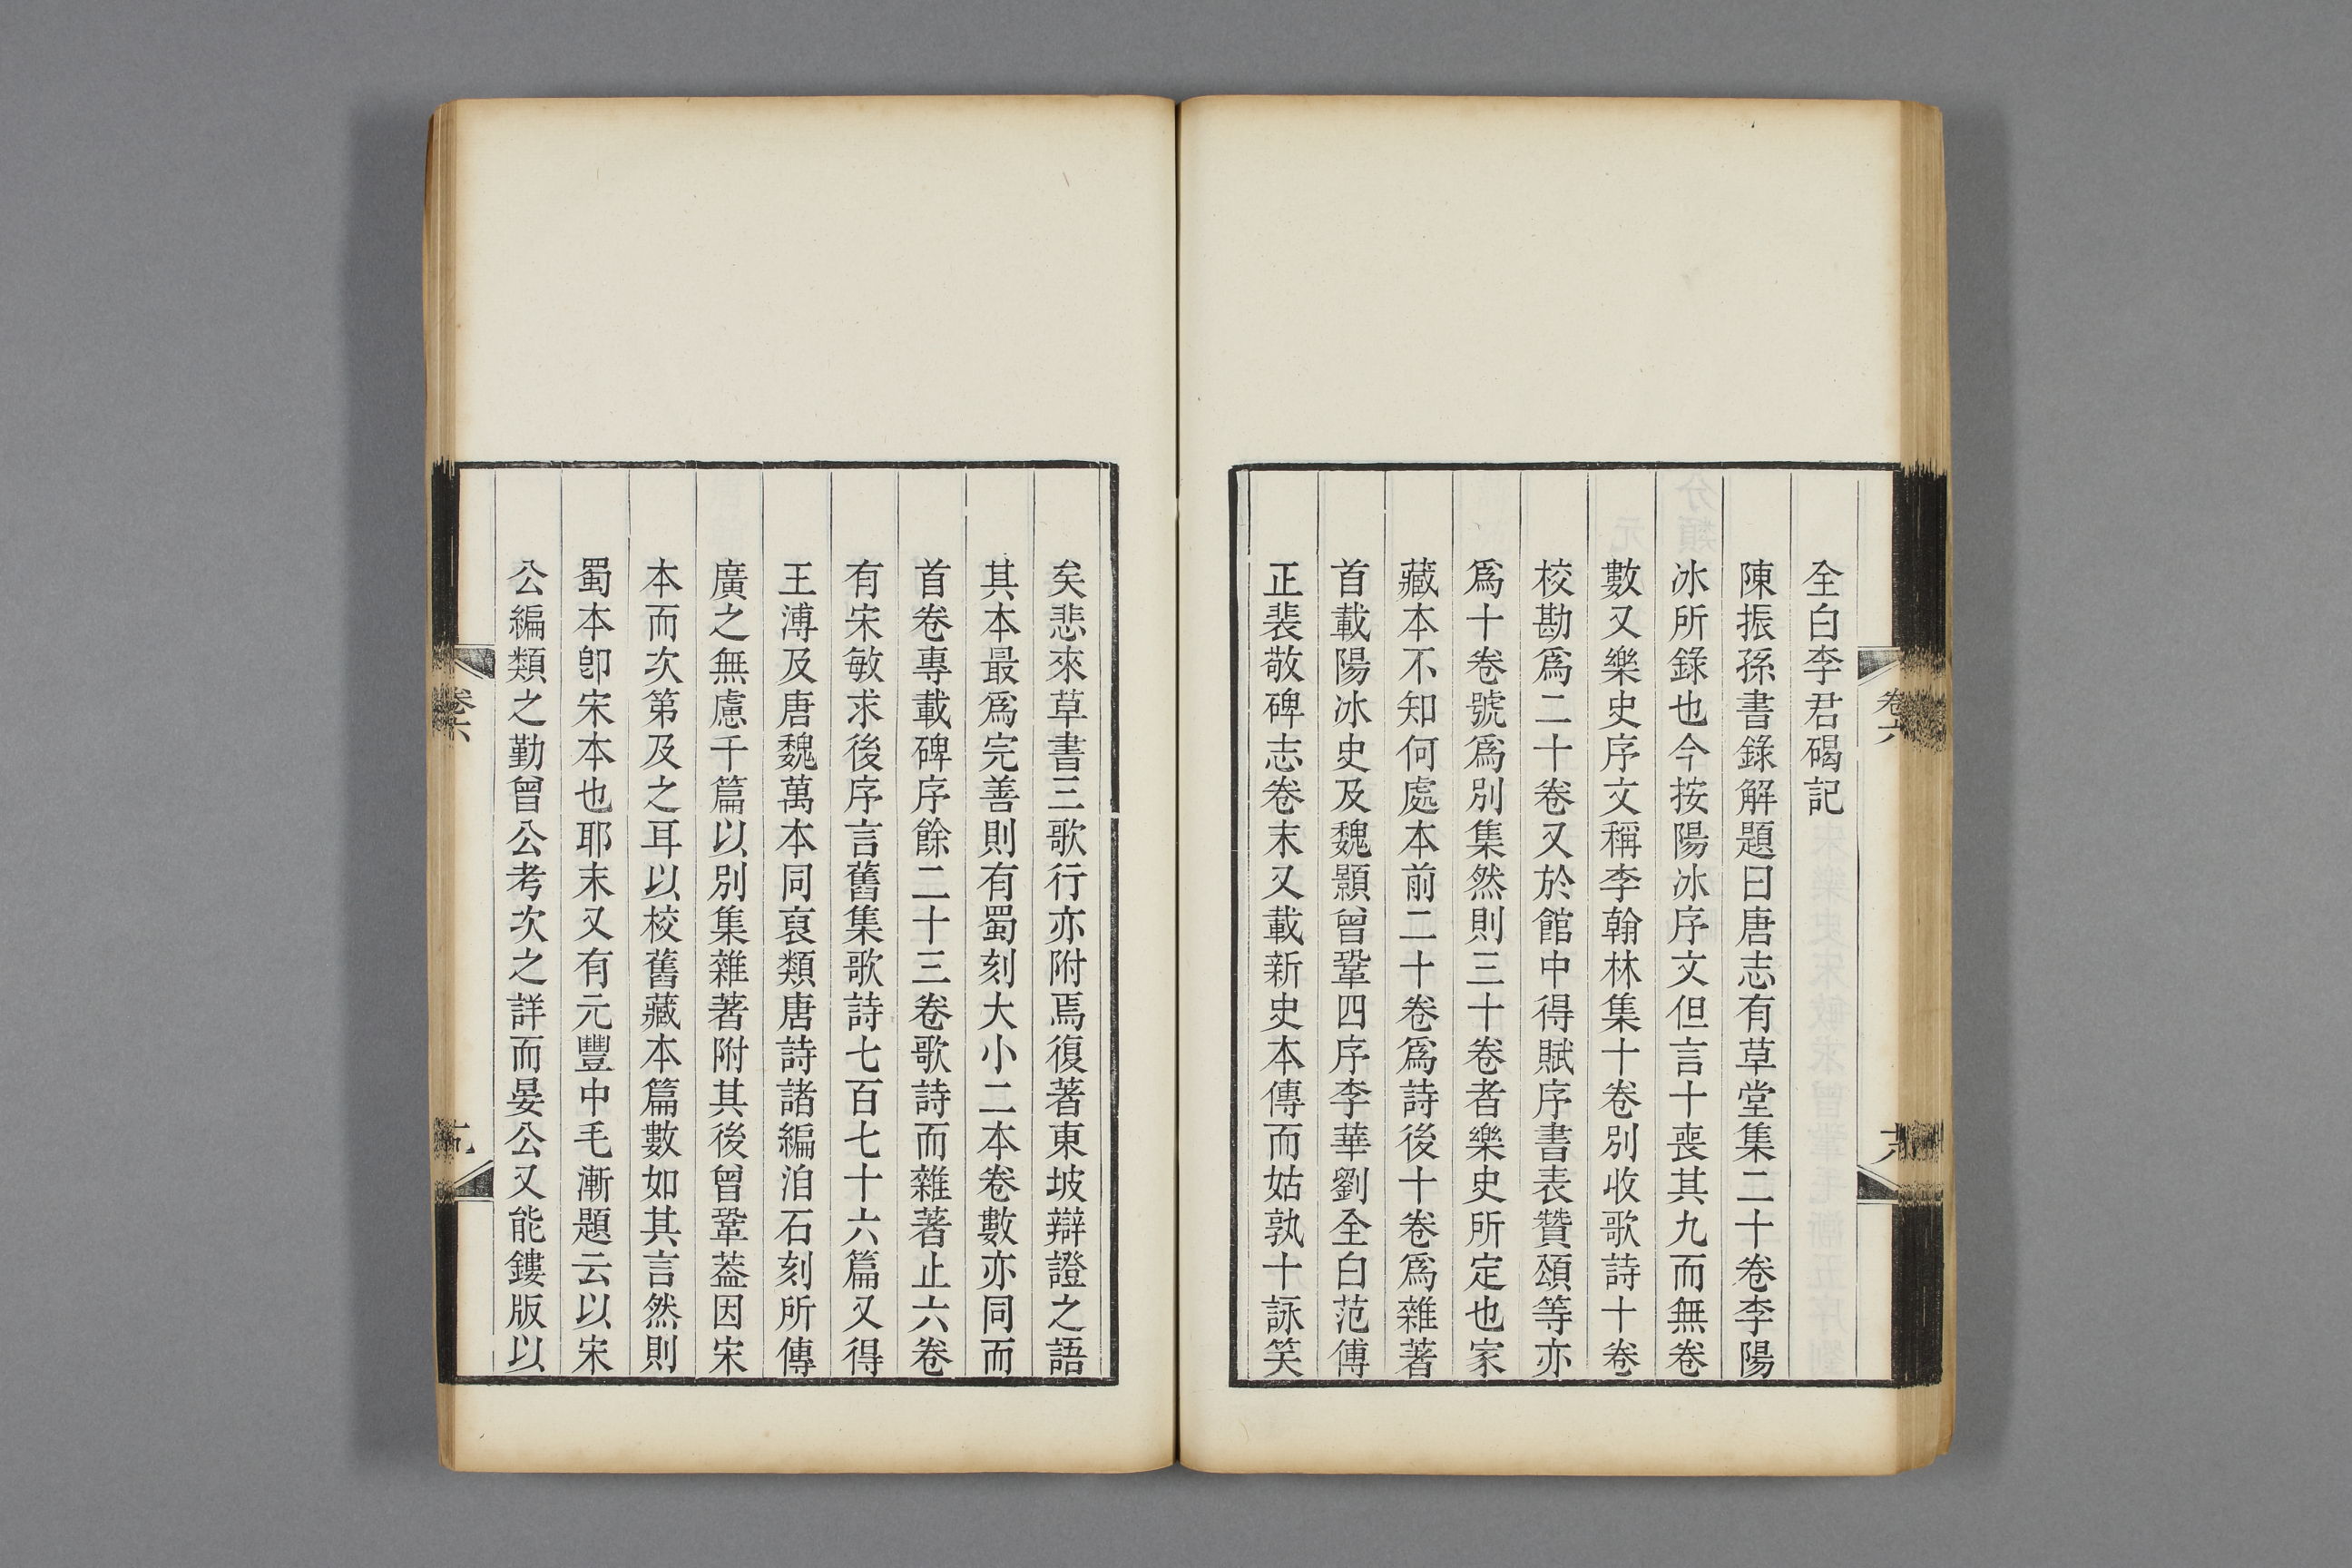 全白李君碣記
陳振孫書錄解題曰唐志有草堂集二十卷李陽
冰所錄也今按陽冰序文但言十喪其九而無卷
數又樂史序文稱李翰林集十卷別收歌詩十卷
校勘爲二十卷又於館中得賦序書表贊頌等亦
爲十卷號爲別集然則三十卷者樂史所定也家
藏本不知何處本前二十卷爲詩後十卷爲雜著
首載陽冰史及魏顥曾鞏四序李華劉全白范傳
正裴敬碑志卷末又載新史本傳而姑孰十詠笑
矣悲來草書三歌行亦附焉復著東坡辯證之語
其本最爲完善則有蜀刻大小二本卷數亦同而
首卷專載碑序餘二十三卷歌詩而雜著止六卷
有宋敏求後序言舊集歌詩七百七十六篇又得
王溥及唐魏萬本同裒類唐詩諸編洎石刻所傳
廣之無慮千篇以別集雜著附其後曾鞏葢因宋
本而次第及之耳以校舊藏本篇數如其言然則
蜀本卽宋本也耶末又有元豐中毛漸題云以宋
公編類之勤曾公考次之詳而晏公又能鏤版以
卷六